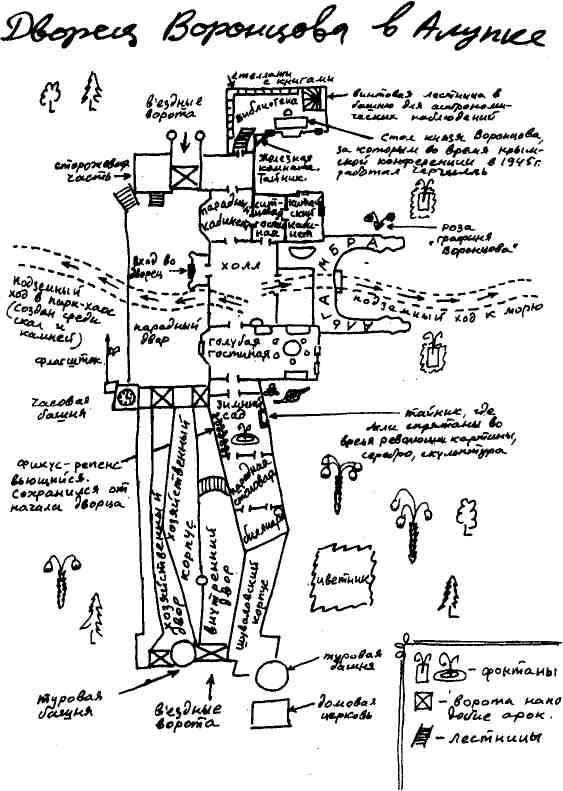 Дворец Воронцова в Алупке
стеллажи
с книгами
библиотека
винтовая лестница в
башню для астрономи-
ческих наблюдений
въездные
ворота
стол князя Воронцова,
за которым во время крым-
ской конференции в 1945г.
работал Черчилль
железная
комната.
Тайник.
сторожевая
часть
парадный
кабинет
сит-
цевая
гост
ная
китай
ский
каби-
нет
роза
"графиня
Воронцова"
вход во
дворец
холл
АЛЬГАМБРА
подземный
ход в парк-хаос
(создан среди
скал и
камней)
подземный ход к морю
парадный
двор
голубая
гостиная
флагшток
часовая
башня
зимний
сад
тайник, где
были спрятаны во
время революции картины,
серебро, скульптура
фикус-репенс
вьющийся.
Сохранился от
начала дворца
парадная
столовая
бильярд
хозяйственный
корпус
хозяйственный
двор
внутренний
двор
шуваловский
корпус
цветник
туровая
башня
туровая
башня
въездные
ворота
домовая
церковь
- фонтаны
- ворота напо
добие арок.
- лестницы